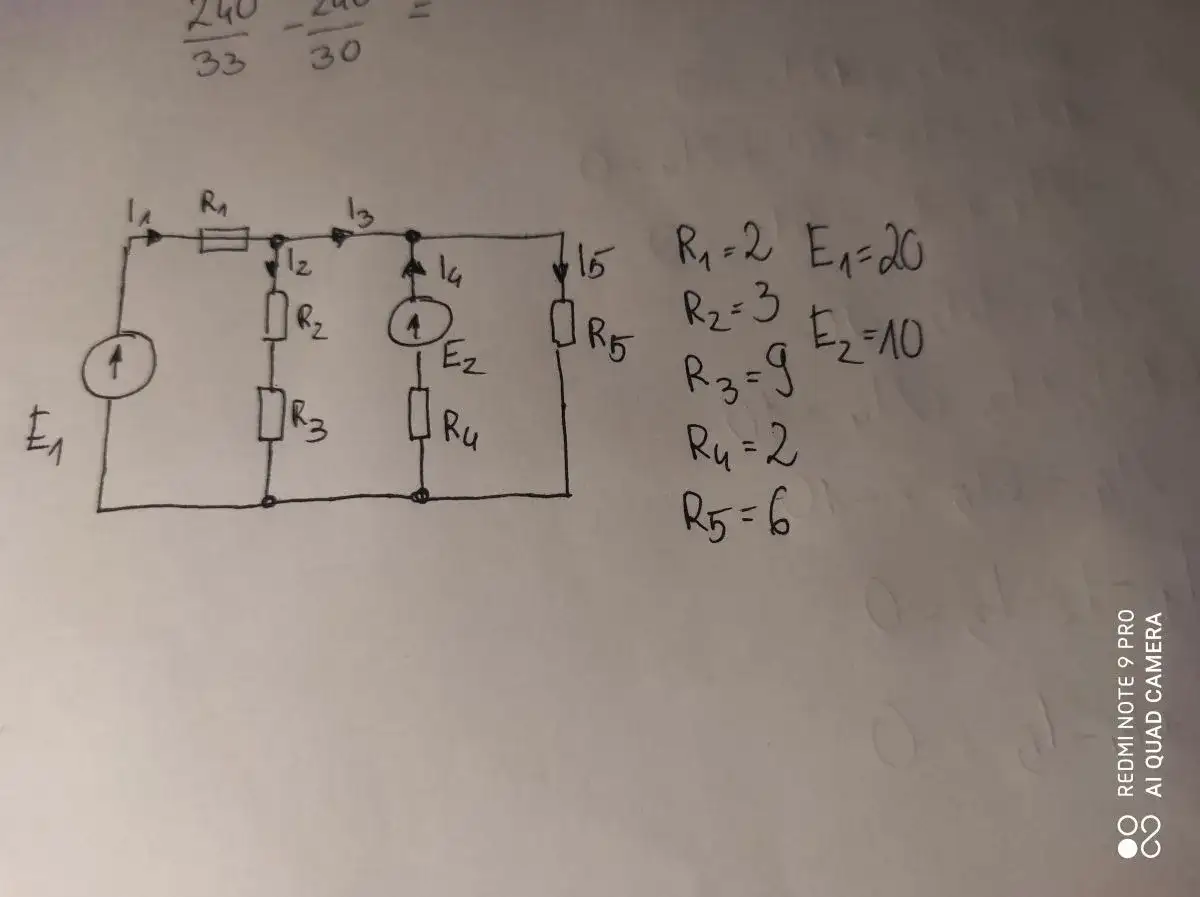 240
33
-
30
=
I1 R1 I3
I2 I4 I5
R2 R5
E2
E1 R3 R4
R1=2 E1=20
R2=3 E2=10
R3=9
R4=2
R5=6
REDMI NOTE 9 PRO
AI QUAD CAMERA